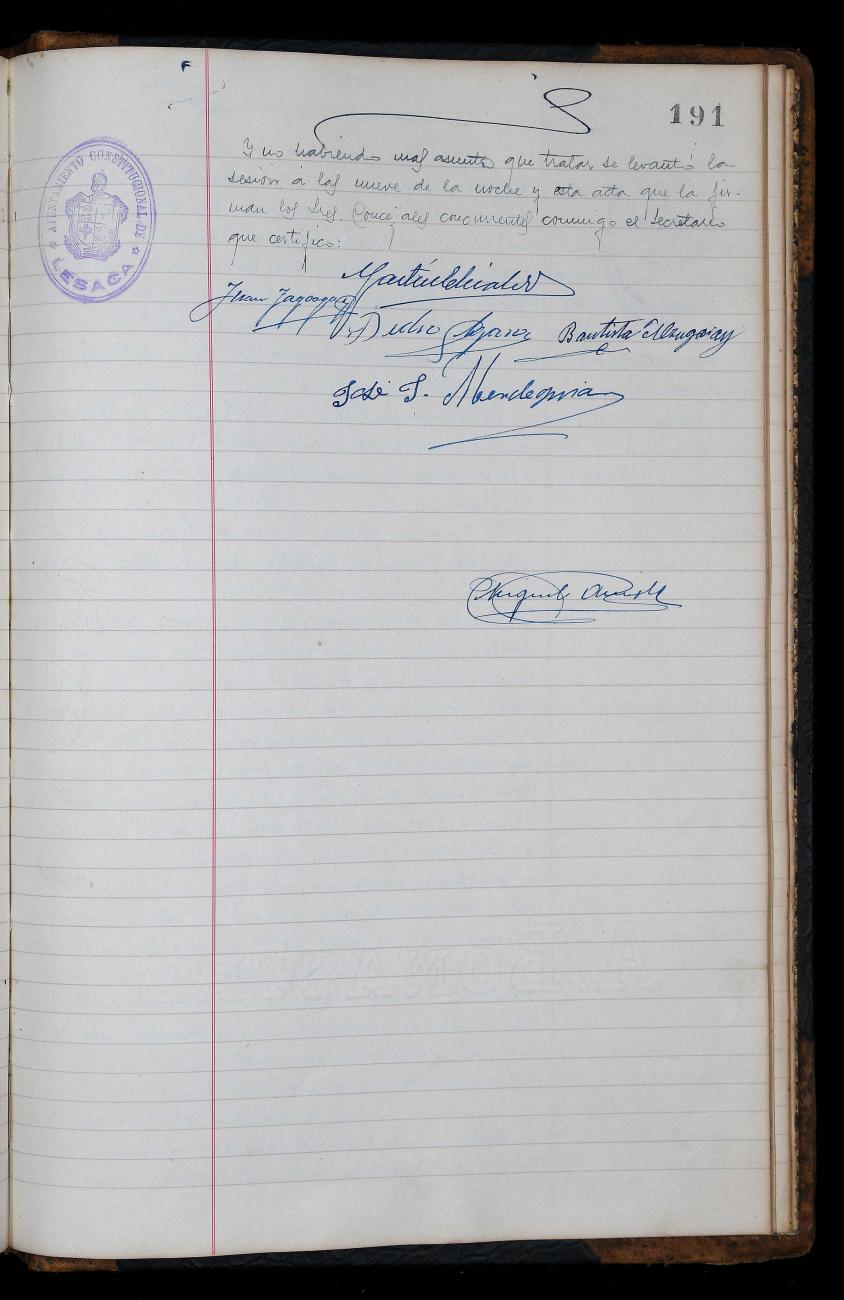 191
AYUNTAMIENTO CONSTITUCIONAL DE
LESACA
Y no habiendo mas asunto que tratar, se levantó la
sesion á las nueve de la noche y esta acta que la fir-
man los Sres. Concejales concurrentes conmigo el Secretario
que certifico:
Martin
Juan
Pedro
Bautista
José